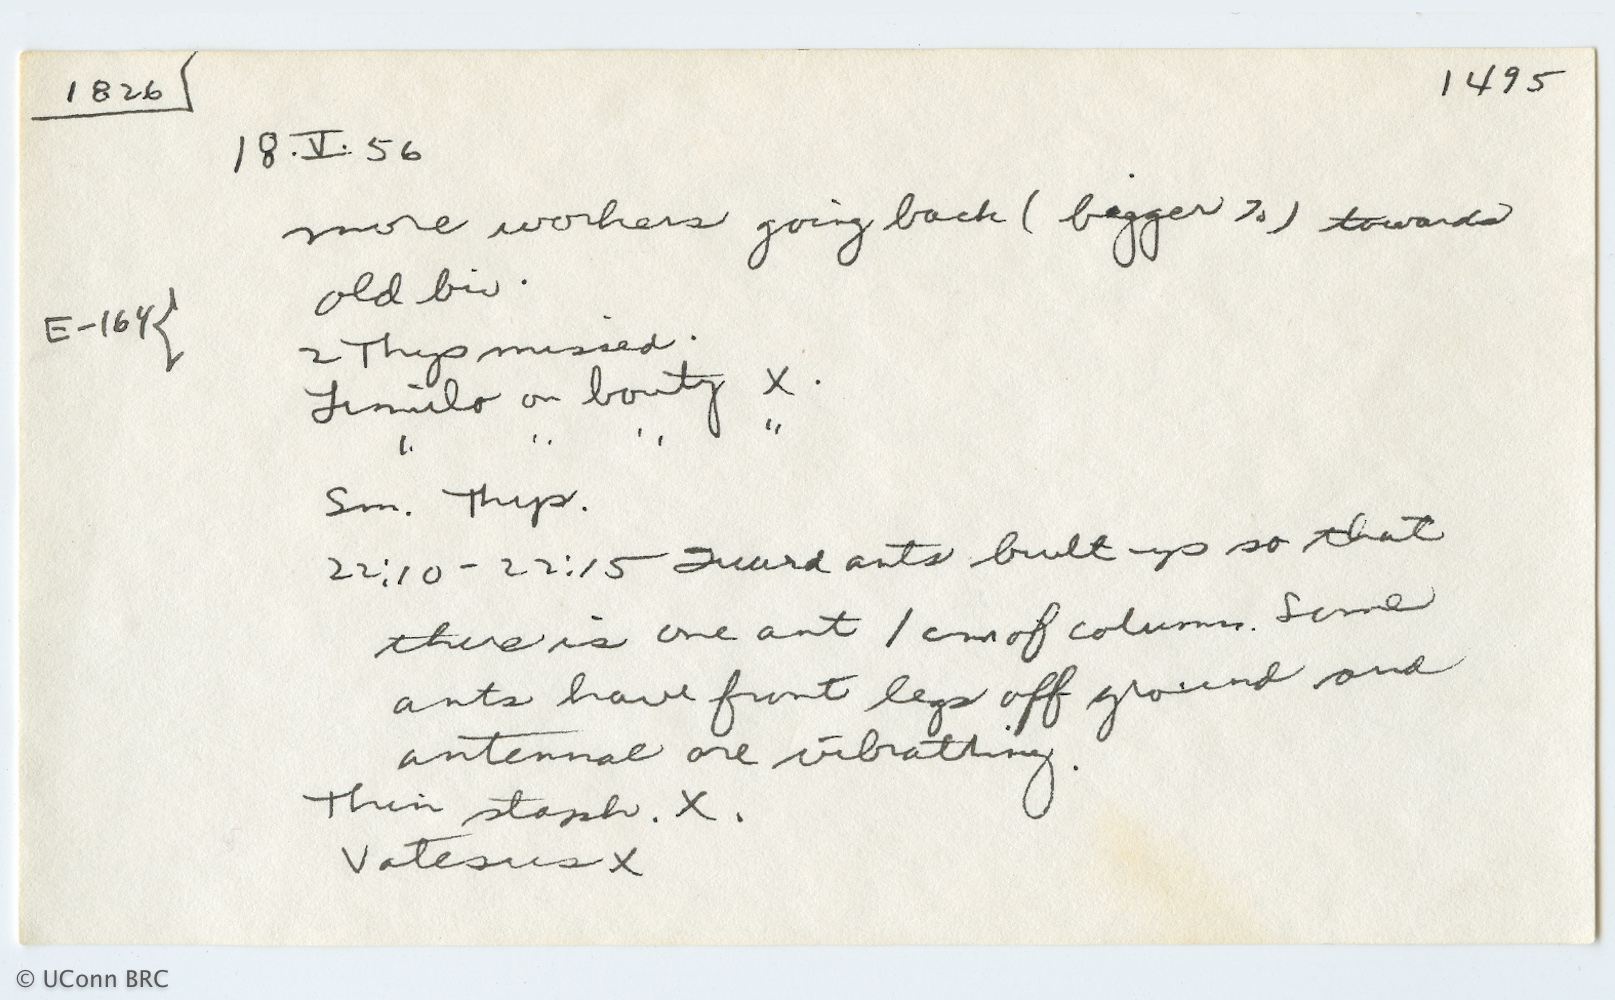 1826
1495
18.V.56
more workers going back (bigger %) towards
old biv.
E-164 {
2 Thyp missed.
Limulo on bouty X.
" " " "
Sm. Thyp.
22:10 - 22:15 Guard ants built up so that
there is one ant / cm of column. Some
ants have front legs off ground and
antennae are vibrathing.
Thin staph. X.
Vatesus X
© UConn BRC